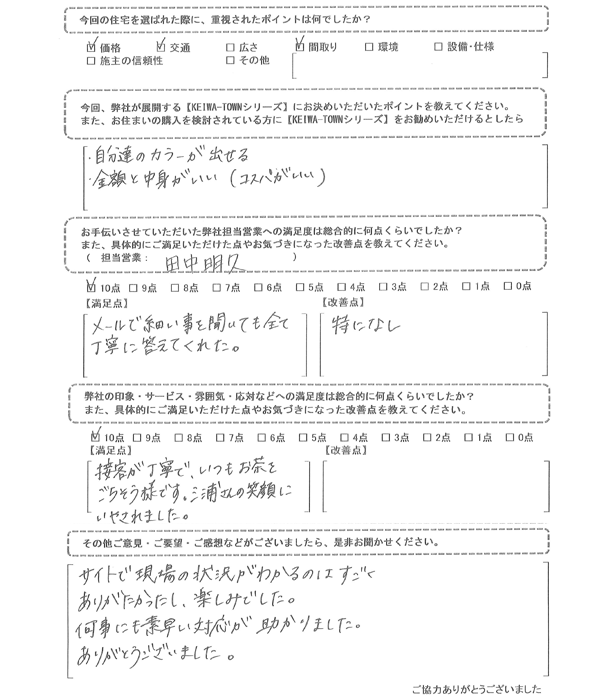 今回の住宅を選ばれた際に、重視されたポイントは何でしたか？
☑ 価格 ☑ 交通 □ 広さ ☑ 間取り □ 環境 □ 設備・仕様
□ 施主の信頼性 □ その他
今回、弊社が展開する【KEIWA-TOWNシリーズ】にお決めいただいたポイントを教えてください。
また、お住まいの購入を検討されている方に【KEIWA-TOWNシリーズ】をお勧めいただけるとしたら
・自分達のカラーが出せる
・金額と中身がいい（コスパがいい）
お手伝いさせていただいた弊社担当営業への満足度は総合的に何点くらいでしたか？
また、具体的にご満足いただけた点やお気づきになった改善点を教えてください。
（ 担当営業： 田中明久 ）
☑ 10点 □ 9点 □ 8点 □ 7点 □ 6点 □ 5点 □ 4点 □ 3点 □ 2点 □ 1点 □ 0点
【満足点】 【改善点】
メールで細い事を聞いても全て
丁寧に答えてくれた。
特になし
弊社の印象・サービス・雰囲気・応対などへの満足度は総合的に何点くらいでしたか？
また、具体的にご満足いただけた点やお気づきになった改善点を教えてください。
☑ 10点 □ 9点 □ 8点 □ 7点 □ 6点 □ 5点 □ 4点 □ 3点 □ 2点 □ 1点 □ 0点
【満足点】 【改善点】
接客が丁寧で、いつもお茶を
ごちそう様です。三浦さんの笑顔に
いやされました。
その他ご意見・ご要望・ご感想などがございましたら、是非お聞かせください。
サイトで現場の状況がわかるのはすごく
ありがたかったし、楽しみでした。
何事にも素早い対応が助かりました。
ありがとうございました。
ご協力ありがとうございました